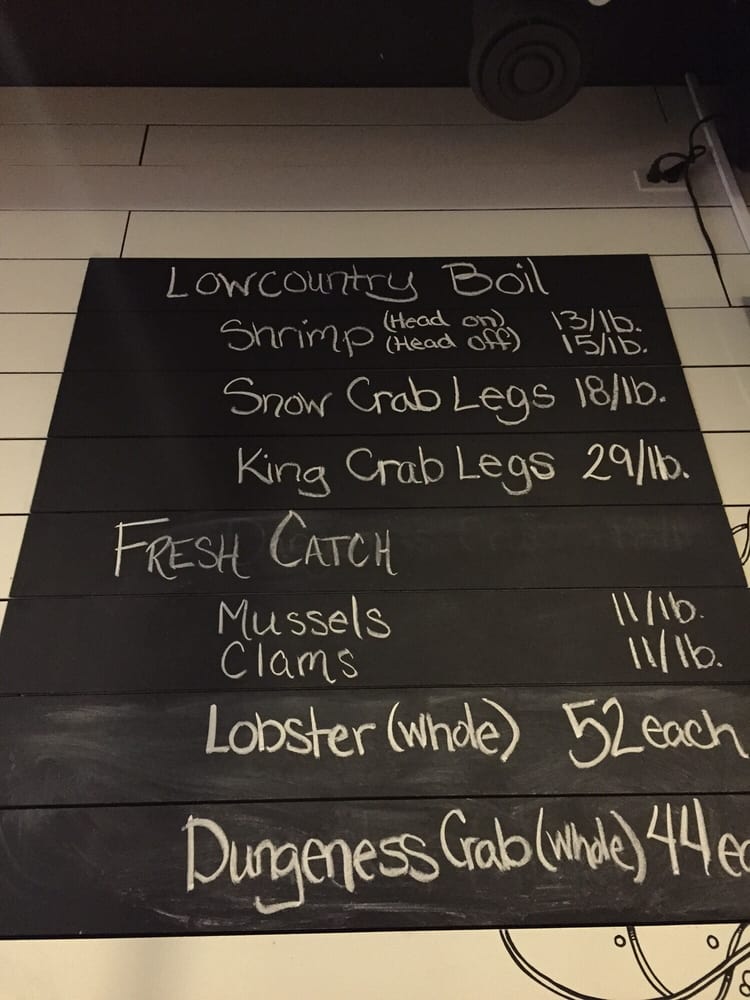 Lowcountry Boil
Shrimp (Head on) 13/lb.
(Head Off) 15/lb.
Snow Crab Legs 18/lb.
King Crab Legs 29/lb.
FRESH CATCH
Mussels 11/lb.
Clams 11/lb.
Lobster (whole) 52 each
Dungeness Crab (whole) 44 ea